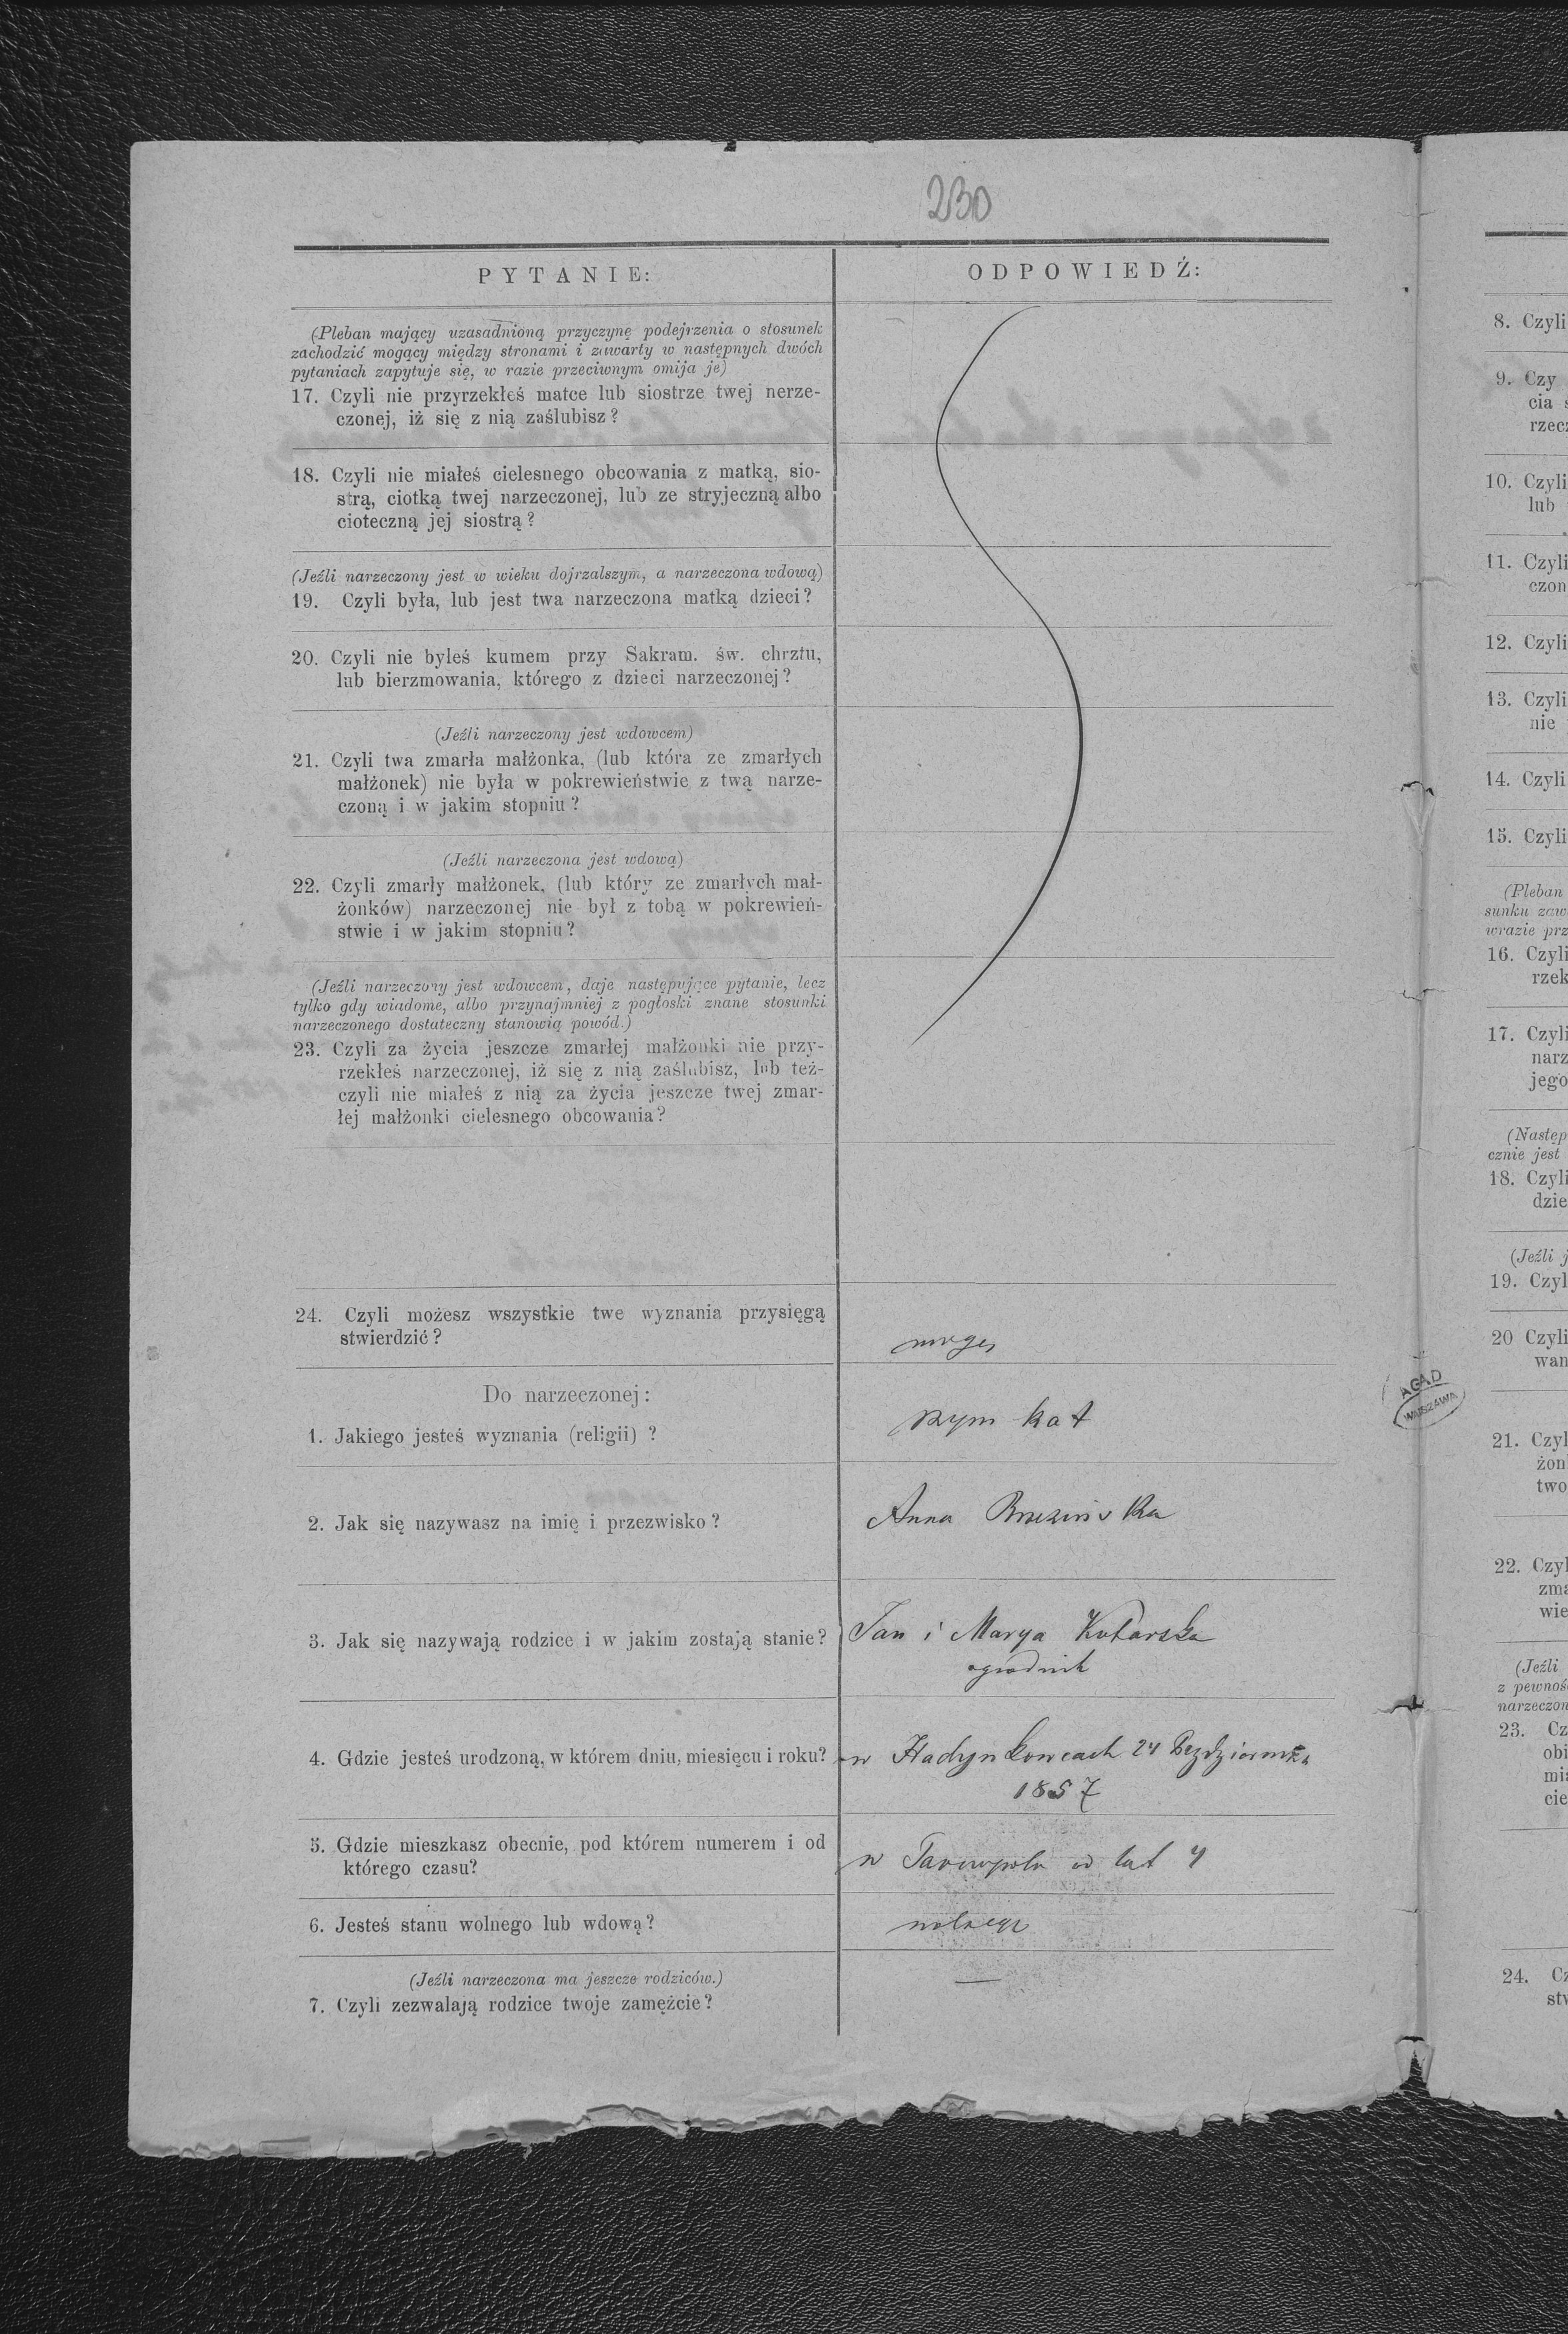 230
PYTANIE:
ODPOWIEDŹ:
(Pleban mający uzasadnioną przyczynę podejrzenia o stosunek
zachodzić mogący między stronami i zawarty w następnych dwóch
pytaniach zapytuje się, w razie przeciwnym omija je)
17. Czyli nie przyrzekłeś matce lub siostrze twej nerze-
czonej, iż się z nią zaślubisz?
18. Czyli nie miałeś cielesnego obcowania z matką, sio-
strą, ciotką twej narzeczonej, lub ze stryjeczną albo
cioteczną jej siostrą?
(Jeźli narzeczony jest w wieku dojrzalszym, a narzeczona wdową)
19. Czyli była, lub jest twa narzeczona matką dzieci?
20. Czyli nie byłeś kumem przy Sakram. św. chrztu,
lub bierzmowania, którego z dzieci narzeczonej?
(Jeźli narzeczony jest wdowcem)
21. Czyli twa zmarła małżonka, (lub która ze zmarłych
małżonek) nie była w pokrewieństwie z twą narze-
czoną i w jakim stopniu?
(Jeźli narzeczona jest wdową)
22. Czyli zmarły małżonek, (lub który ze zmarłych mał-
żonków) narzeczonej nie był z tobą w pokrewień-
stwie i w jakim stopniu?
(Jeźli narzeczony jest wdowcem, daje następujące pytanie, lecz
tylko gdy wiadome, albo przynajmniej z pogłoski znane stosunki
narzeczonego dostateczny stanowią powód.)
23. Czyli za życia jeszcze zmarłej małżonki nie przy-
rzekłeś narzeczonej, iż się z nią zaślubisz, lub też-
czyli nie miałeś z nią za życia jeszcze twej zmar-
łej małżonki cielesnego obcowania?
24. Czyli możesz wszystkie twe wyznania przysięgą
stwierdzić?
mogę
Do narzeczonej:
1. Jakiego jesteś wyznania (religii) ?
rzym kat
2. Jak się nazywasz na imię i przezwisko?
Anna Brzezińska
3. Jak się nazywają rodzice i w jakim zostają stanie?
Jan i Marya Kutarska
ogrodnik
4. Gdzie jesteś urodzoną, w którem dniu, miesięcu i roku?
w Hadynkowcach 24 Października
1857
5. Gdzie mieszkasz obecnie, pod którem numerem i od
którego czasu?
w Tarnopolu od lat 4
6. Jesteś stanu wolnego lub wdową?
wolnego
(Jeźli narzeczona ma jeszcze rodziców.)
7. Czyli zezwalają rodzice twoje zamęźcie?
—
AGAD
WARSZAWA
8. Czyli
9. Czy
cia
rzecz
10. Czyli
lub
11. Czyli
czon
12. Czyli
13. Czyli
nie
14. Czyli
15. Czyli
(Pleban
sunku zaw
wrazie prz
16. Czyli
rzek
17. Czyli
narz
jego
(Następ
cznie jest
18. Czyli
dzie
(Jeźli j
19. Czyl
20 Czyli
wan
21. Czyl
żon
two
22. Czyl
zma
wie
(Jeźli
z pewnoś
narzeczon
23. Cz
obi
mia
cie
24. Cz
stw